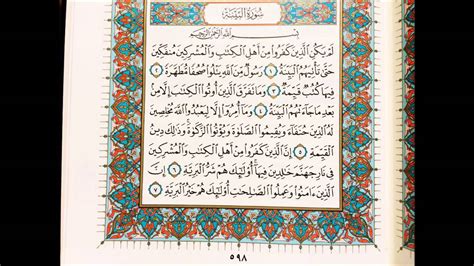 سُورَةُ البَيِّنَةِ
بِسْمِ اللَّهِ الرَّحْمَٰنِ الرَّحِيمِ
لَمْ يَكُنِ الَّذِينَ كَفَرُوا مِنْ أَهْلِ الْكِتَابِ وَالْمُشْرِكِينَ مُنفَكِّينَ
حَتَّىٰ تَأْتِيَهُمُ الْبَيِّنَةُ ١ رَسُولٌ مِّنَ اللَّهِ يَتْلُوا صُحُفًا مُّطَهَّرَةً ٢
فِيهَا كُتُبٌ قَيِّمَةٌ ٣ وَمَا تَفَرَّقَ الَّذِينَ أُوتُوا الْكِتَابَ إِلَّا مِنۢ
بَعْدِ مَا جَاءَتْهُمُ الْبَيِّنَةُ ٤ وَمَا أُمِرُوا إِلَّا لِيَعْبُدُوا اللَّهَ مُخْلِصِينَ
لَهُ الدِّينَ حُنَفَاءَ وَيُقِيمُوا الصَّلَوٰةَ وَيُؤْتُوا الزَّكَوٰةَ وَذَٰلِكَ دِينُ
الْقَيِّمَةِ ٥ إِنَّ الَّذِينَ كَفَرُوا مِنْ أَهْلِ الْكِتَابِ وَالْمُشْرِكِينَ
فِي نَارِ جَهَنَّمَ خَالِدِينَ فِيهَا أُولَٰئِكَ هُمْ شَرُّ الْبَرِيَّةِ ٦ إِنَّ
الَّذِينَ ءَامَنُوا وَعَمِلُوا الصَّالِحَاتِ أُولَٰئِكَ هُمْ خَيْرُ الْبَرِيَّةِ ٧
٥٩٨